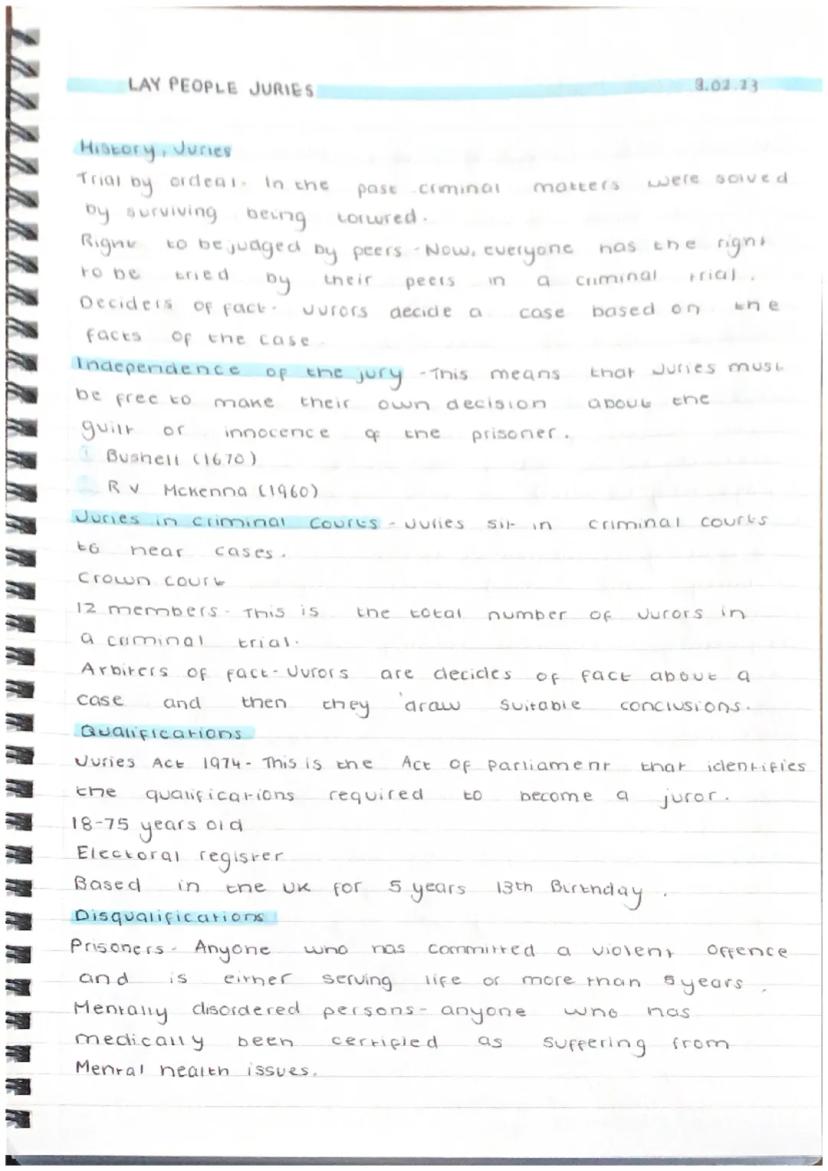 LAY PEOPLE JURIES 9.02.23
History, Juries
Trial by ordeal. In the past criminal matters were solved
by surviving being tortured.
Right to be judged by peers - Now, everyone has the right
to be tried by their peers in a criminal trial.
Deciders of fact - Jurors decide a case based on the
facts of the case.
Independence of the jury - This means that Juries must
be free to make their own decision about the
guilt or innocence of the prisoner.
1 Bushell (1670)
2 R v McKenna (1960)
Juries in Criminal Courts - Juries sit in criminal courts
to hear cases.
Crown court
12 members - This is the total number of Jurors in
a criminal trial.
Arbiters of fact - Jurors are decides of fact about a
case and then they draw suitable conclusions.
Qualifications
Juries Act 1974 - This is the Act of parliament that identifies
the qualifications required to become a juror.
18-75 years old
Electoral register
Based in the UK for 5 years 13th Birthday.
Disqualifications
Prisoners - Anyone who has committed a violent offence
and is either serving life or more than 5 years.
Mentally disordered persons - anyone who has
medically been certified as suffering from
Mental health issues.